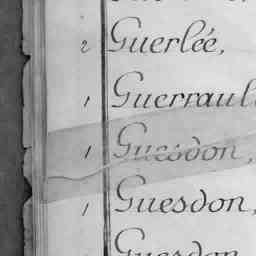 2 Guerlée,
1 Guerraul
1 Guesdon,
1 Guesdon,
Guesdon